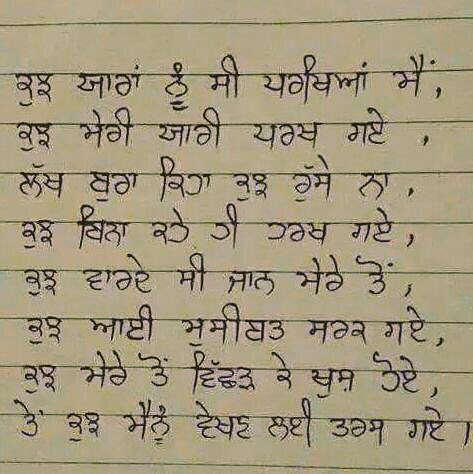 ਕੁਝ ਯਾਰਾਂ ਨੂੰ ਸੀ ਪਰਖਿਆਂ ਮੈਂ,
ਕੁਝ ਮੇਰੀ ਯਾਰੀ ਪਰਖ ਗਏ ,
ਲੱਖ ਬੁਰਾ ਕਿਹਾ ਕੁਝ ਰੁੱਸੇ ਨਾ,
ਕੁਝ ਬਿਨਾ ਕਹੇ ਹੀ ਹਰਖ ਗਏ,
ਕੁਝ ਵਾਰਦੇ ਸੀ ਜਾਨ ਮੇਰੇ ਤੋਂ,
ਕੁਝ ਆਈ ਮੁਸੀਬਤ ਸਰਕ ਗਏ,
ਕੁਝ ਮੇਰੇ ਤੋਂ ਵਿੱਛੜ ਕੇ ਖੁਸ਼ ਹੋਏ,
ਤੇ ਕੁਝ ਮੈਨੂੰ ਵੇਖਣ ਲਈ ਤਰਸ ਗਏ।